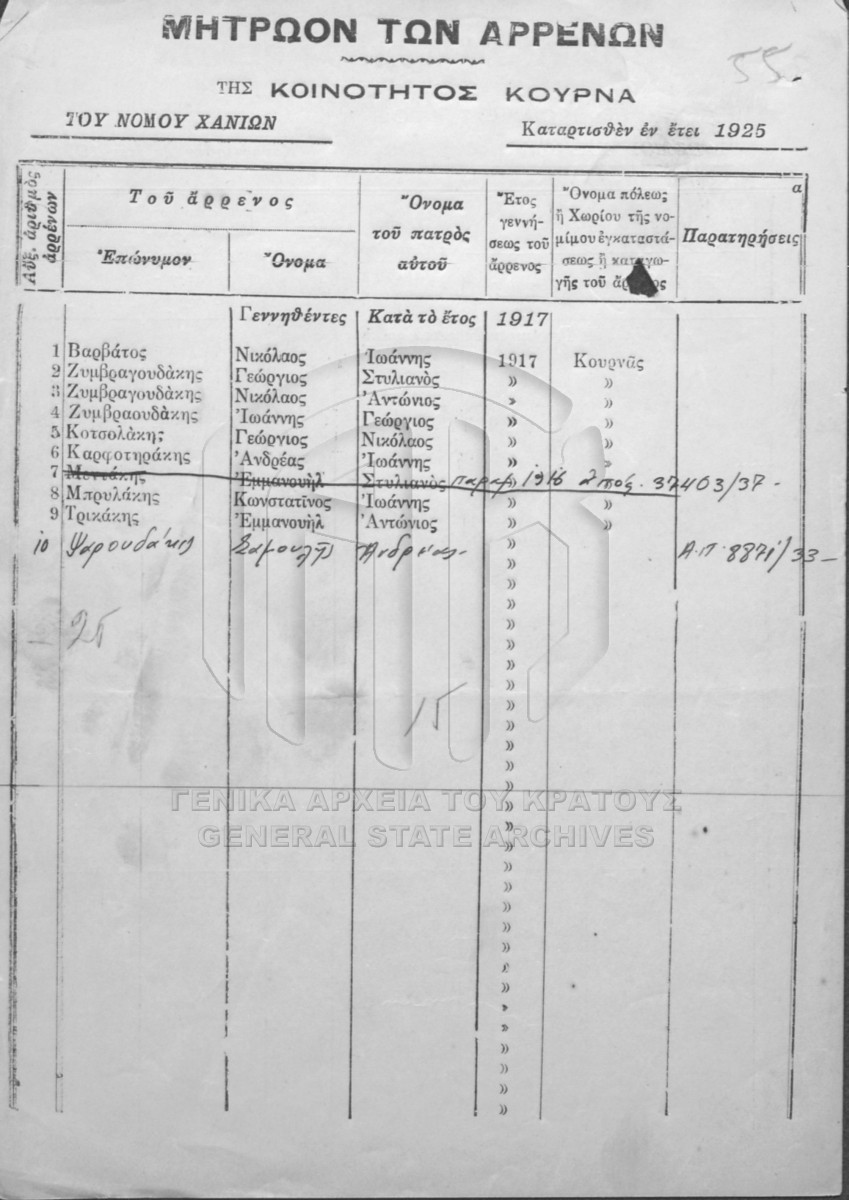 ΜΗΤΡΩΟΝ ΤΩΝ ΑΡΡΕΝΩΝ
55.
ΤΗΣ ΚΟΙΝΟΤΗΤΟΣ ΚΟΥΡΝΑ
ΤΟΥ ΝΟΜΟΥ ΧΑΝΙΩΝ
Καταρτισθὲν ἐν ἔτει 1925
Αὔξ. ἀριθμὸς ἀρρένων
Τοῦ ἄρρενος
Ἐπώνυμον
Ὄνομα
Ὄνομα τοῦ πατρὸς αὐτοῦ
Ἔτος γεννήσεως τοῦ ἄρρενος
Ὄνομα πόλεως ἢ Χωρίου τῆς νομίμου ἐγκαταστάσεως ἢ καταγωγῆς τοῦ ἄρρενος
α
Παρατηρήσεις
Γεννηθέντες Κατὰ τὸ ἔτος 1917
1 Βαρβάτος Νικόλαος Ἰωάννης 1917 Κουρνᾶς
2 Ζυμβραγουδάκης Γεώργιος Στυλιανὸς » »
3 Ζυμβραγουδάκης Νικόλαος Ἀντώνιος » »
4 Ζυμβραουδάκης Ἰωάννης Γεώργιος » »
5 Κοτσολάκης Γεώργιος Νικόλαος » »
6 Καρφοτηράκης Ἀνδρέας Ἰωάννης » »
7 Μεντάκης Ἐμμανουὴλ Στυλιανὸς 1916 37403/37-
8 Μπρυλάκης Κωνστατῖνος Ἰωάννης » »
9 Τρικάκης Ἐμμανουὴλ Ἀντώνιος » »
10 Ψαρουδάκις Ἀνδρέας- » Α.Π. 8871/33-
25
15
ΓΕΝΙΚΑ ΑΡΧΕΙΑ ΤΟΥ ΚΡΑΤΟΥΣ
GENERAL STATE ARCHIVES